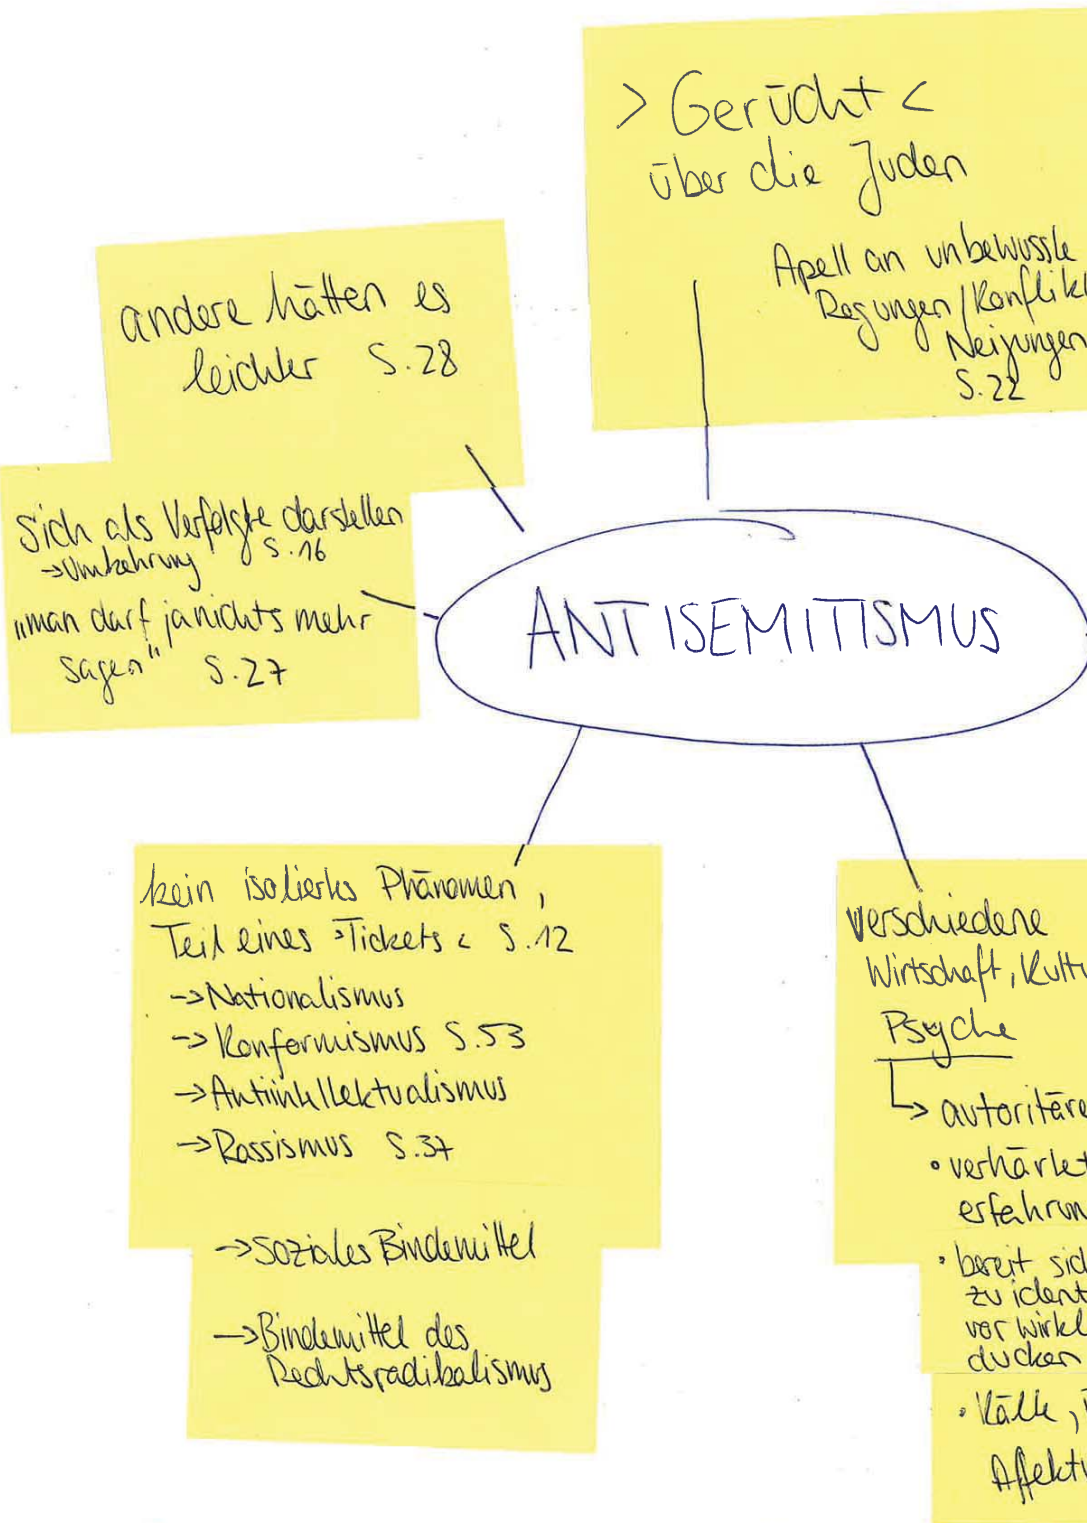 > Gerücht <
über die Juden
Apell an unbewusste
Regungen/Konflikt
Neigungen
S.22
andere hätten es
leichter S.28
sich als Verfolgte darstellen
→Umkehrung S.16
„man darf ja nichts mehr
sagen" S.27
ANTISEMITISMUS
kein isoliertes Phänomen,
Teil eines >Tickets< S.12
→Nationalismus
→Konformismus S.53
→Antiintellektualismus
→Rassismus S.37
→soziales Bindemittel
→Bindemittel des
Rechtsradikalismus
verschiedene
Wirtschaft, Kultu
Psyche
↳ autoritäre
• verhärtet
erfahrun
• bereit sic
zu ident
vor wirkl
ducken
• Kälte,
Affektu